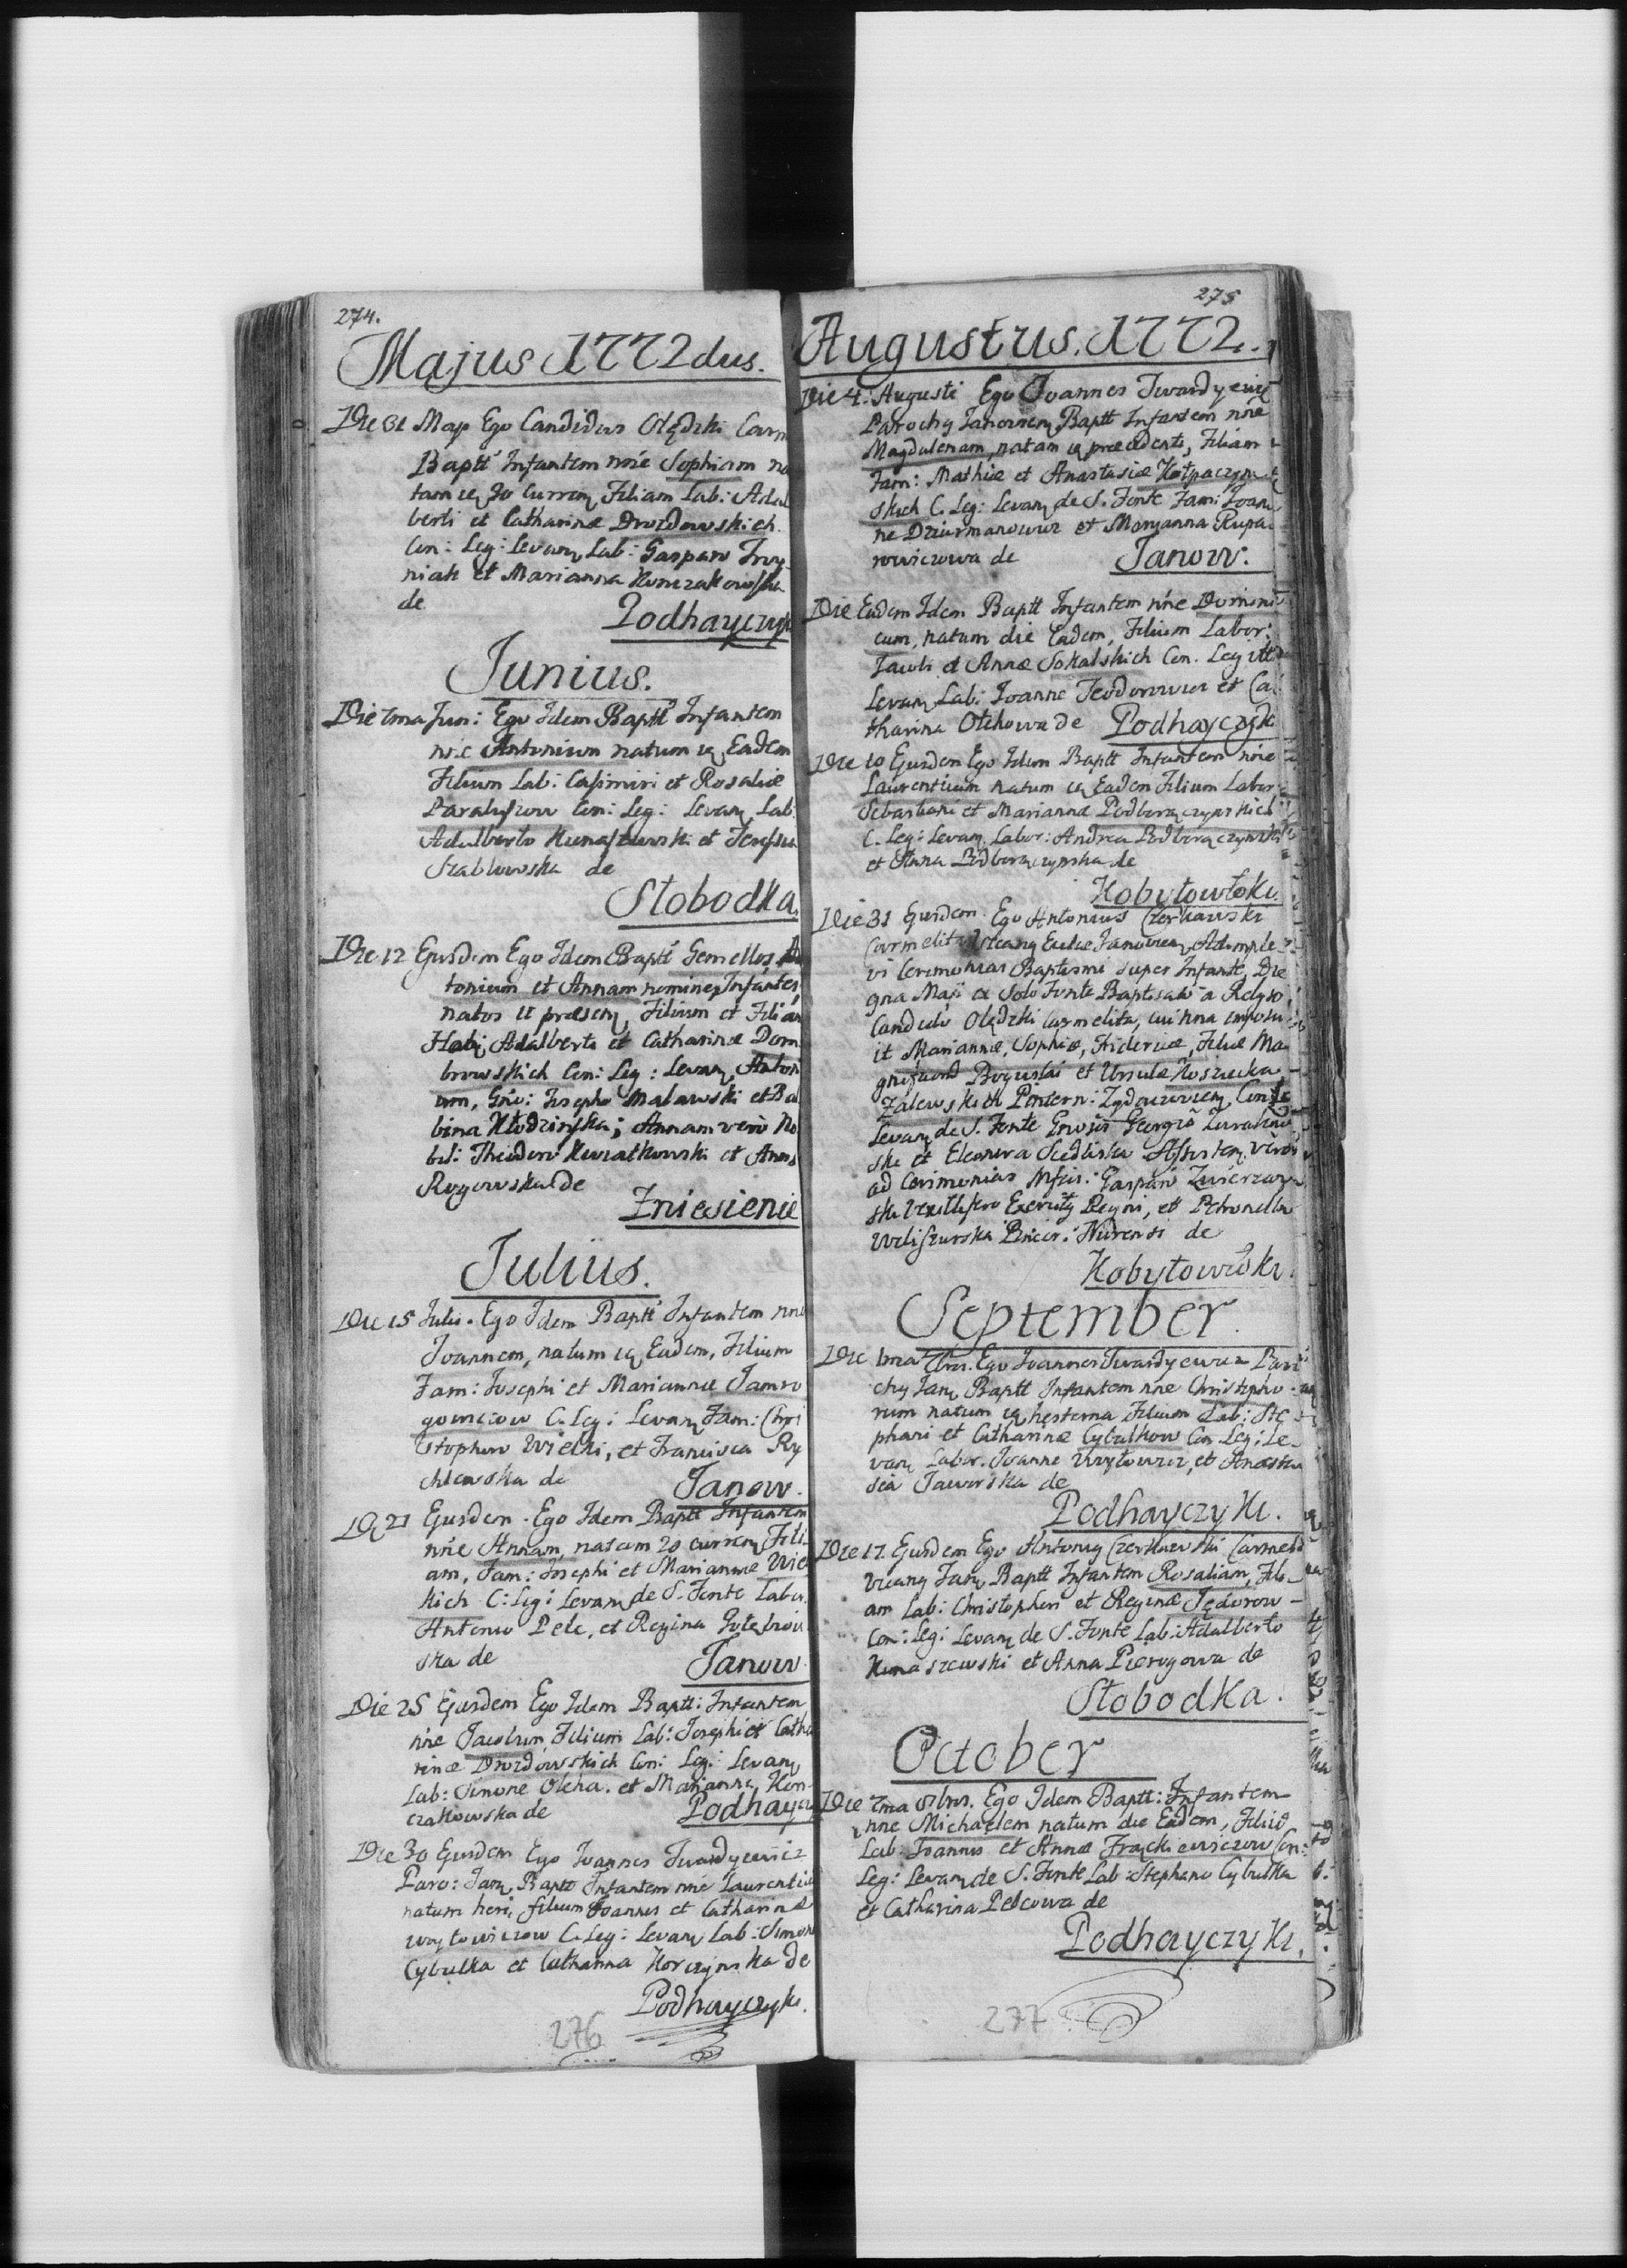 274.
Majus 1772dus.
Die 31 Maji Ego Candidus Olędzki Carm
Baptt Infantem nne Sophiam na
tam 30 Curren Filiam Lab: Adal
berti et Catharinæ Drozdowskich
Con: Leg: Levan Lab: Gasparo Troy
niak et Marianna Konczakowska
de
Podhayczyk
Junius.
Die 7ma Jun: Ego Idem Baptt Infantem
nne Antonium natum Eadem
Filium Lab: Casimiri et Rosaliæ
Con: Leg: Levan Lab:
Adalberto Kunaszewski et Teressia
Szablowska de
Słobodka.
Die 12 Ejusdem Ego Idem Baptt Gemellos An
tonium et Annam nomine Infantes
natos præsen Filium et Filiam
Adalberti et Catharinæ Dom
browskich Con: Leg: Levan Antoni
um, Gno: Josepho Malawski et Ba
bina Kłodzińska; Annam vero No
bil: Theodoro Kwiatkowski et Anna
Rogowska de
Zniesienie
Julius.
Die 15 Julii. Ego Idem Baptt Infantem nne
Joannem, natum Eadem, Filium
Fam: Josephi et Mariannæ Jamro
gowiczow C. Leg: Levan Fam: Chri
stophoro Wielki, et Francisca Ry
chlewska de
Janow.
21 Ejusdem. Ego Idem Baptt Infantem
nne Annam, natam 20 curren Fili
am, Fam: Josephi et Mariannæ Wiel
kich C: Leg: Levan de S. Fonte Labor
Antonio Pelc, et Regina
ska de
Janow.
Die 25 Ejusdem Ego Idem Baptt: Infantem
nne Jacobum, Filium Lab: Josephi et Catha
rinæ Drozdowskich Con: Leg: Levan
Lab: Simone Olcha. et Marianna Kon
czakowska de
Podhaycz
Die 30 Ejusdem Ego Joannes Twardyewicz
Paro: Jan Baptt Infantem nne Laurentiu
natum heri filium Joannis et Catharinæ
Woytowiczow C. Leg: Levan Lab: Simone
Cybulka et Catharina Korczynska de
Podhayczyk.
276
275
Augustus. 1772.
Die 4. Augusti Ego Joannes Twardyewicz
Parochy Janovien Baptt Infantem nne
Magdalenam, natam præcedenti, Filiam
Fam: Mathiæ et Anastasiæ Kołpaczyn
skich C. Leg: Levan de S. Fonte Fam: Joan
ne Dziurmanowicz et Maryanna Rupa
nowiczowa de
Janow.
Die Eadem Idem Baptt Infantem nne Domini
cum, natum die Eadem, Filium Labor:
Jacobi et Annæ Sokalskich Con. Legitt
Levan Lab: Joanne Teodorowicz et Ca
tharina Olchowa de Podhayczyki
Die 10 Ejusdem Ego Idem Baptt Infantem nne
Laurentium natum Eadem Filium Labor
Sebastiani et Marianna Podhoraczynskich
C. Leg: Levan Labor: Andrea Podhoraczynski
et Anna Podhoraczynska de
Kobyłowłoki.
Die 31 Ejusdem. Ego Antonius Czerkawski
Carmelita Vicany Ecclæ Janovien Adimple
vi Ceremonias Baptismi super Infante, Die
gna Maji ex Solo Fonte Baptisata a Relgso
Candido Olędzki Carmelita, cui nna imposu
it Mariannæ, Sophiæ, Filiæ Ma
gnificord Boguslai et Ursulæ Koszucka
Zalewskich Pincern: Zydaczovien Con
Levan de S. Fonte Gnosis Georgio
ski et Eleonora Siedliska Assisten vero
ad Cerimonias Mfcis: Gaspari Zwierzan
ski Vexillifero Exercity Regni, et Petronella
Weliszurska Pincer: Nurensi de
Kobyłowłoki.
September.
Die 1ma 7bris. Ego Joannes Twardyewicz Paro
chy Jan Baptt Infantem nne Christopho
rum natum hesterna Filium Lab: Ste
phani et Catharinæ Cybulkow Con Leg: Le
van Labor. Joanne Woytowicz, et Anasta
sia Jaworska de
Podhayczyki.
Die 17. Ejusdem Ego Antoniy Czerkawski Carmelit
Vicany Jan Baptt Infantem Rosaliam, Fili
am Lab: Christophori et Reginæ Tędorow
Con: Leg: Levan de S. Fonte Lab: Adalberto
Kunaszewski et Anna Pierogowa de
Słobodka.
October
Die 7ma 8bris. Ego Idem Baptt: Infantem
nne Michaelem natum die Eadem, Filiu
Lab: Joannis et Annæ Frąckiewiczow Con:
Leg: Levan de S. Fonte Lab Stephano Cybulka
et Catharina Pelcowa de
Podhayczyki.
277